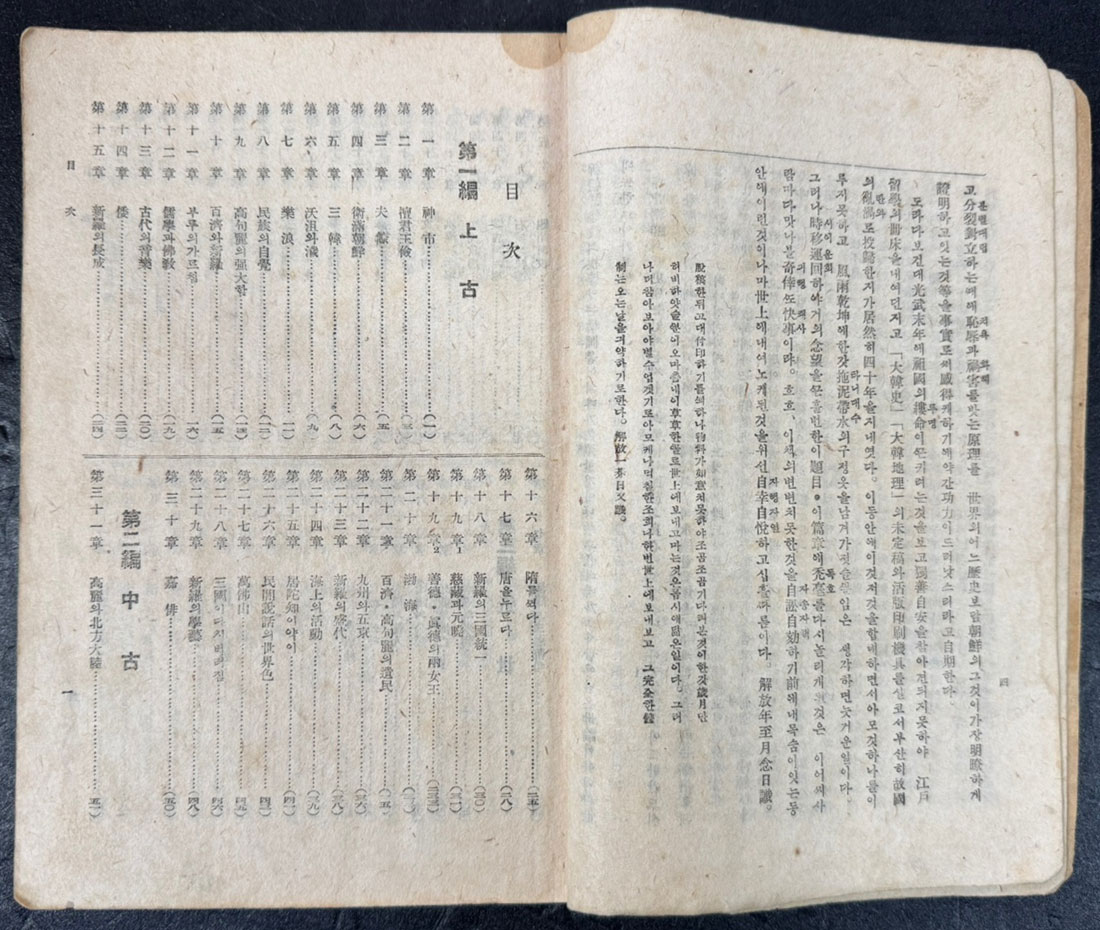 고分裂對立하는때에恥辱과禍害를밧는原理를 世界의어느歷史보담朝鮮의그것이가장明瞭하게
證明하고잇는것等을事實로써感得케하기에약간功力이드러낫스리라고自期한다.
도라다보건대光武末年에祖國의縷命이끈키려는것을보고獨善自安을참아견되지못하야 江戶
留學의冊床을내여던지고「大韓史」「大韓地理」의未定稿와活版印刷機具를실코서부산히故國
의亂渦로投歸한지가居然히四十年을지내엿다。이동안에이것저것을합비하면서아모것하나를이
루지못하고 風雨乾坤에한갓拖泥帶水의구정옷을남겨가젓슬뿐임은 생각하면붓거운일이다.
그러나時移運回하야거의念望을 이題目。이篇章에禿毫를다시놀리게된것은 이어찌사
람마다맛나볼奇倖또快事이랴。호호,이제의변변치못한것을 하기前에내목숨이잇는동
안에이런것이나마世上에내여노케된것을위선自幸自悅하고십흘따름이다。解放年至月念日識。
脫稿한뒤고대付印하기를꾀하나物料가如意치못하야조곰조곰기다려본것이한갓歲月만
허비하얏슬뿐이오마츰내이草草한꼴로世上에보내고마는것은몹시애닯은일이다. 그러
나더참아보아야별수업겟기로아모케나먹칠한조희나한번世上에보내보고 그完全한體
制는오는날을긔약하기로한다。解放 日又識。
四
目次
第一編 上古
第一章 神市……(一)
第二章 檀君王儉……(三)
第三章 夫餘……(五)
第四章 衛滿朝鮮……(六)
第五章 三韓……(八)
第六章 沃沮와濊……(九)
第七章 樂浪……(一一)
第八章 民族의自覺……(一二)
第九章 高句麗의强大함……(一四)
第十章 百濟와新羅……(一五)
第十一章 부루의가르침……(一六)
第十二章 儒學과佛敎……(一九)
第十三章 古代의音樂……(二〇)
第十四章 倭……(二二)
第十五章 新羅의長成……(二四)
第十六章 隋를꺽다……(二五)
第十七章 唐을누르다……(二八)
第十八章 新羅의三國統一……(三〇)
第十九章1 慈藏과元曉……(三一)
第十九章2 善德·眞德의兩女王……(三三)
第二十章 渤海
第二十一章 百濟·高句麗의遺民……(三五)
第二十二章 九州와五京……(三六)
第二十三章 新羅의盛代……(三八)
第二十四章 海上의活動……(三九)
第二十五章 居陀知이야이……(四一)
第二十六章 民間說話의世界色……(四二)
第二十七章 萬佛山……(四五)
第二十八章 三國이다시버려짐……(四六)
第二十九章 新羅의學藝……(四八)
第三十章 嘉俳……(五〇)
第二編 中古
第三十一章 高麗와北方大陸……(五一)
目次
一